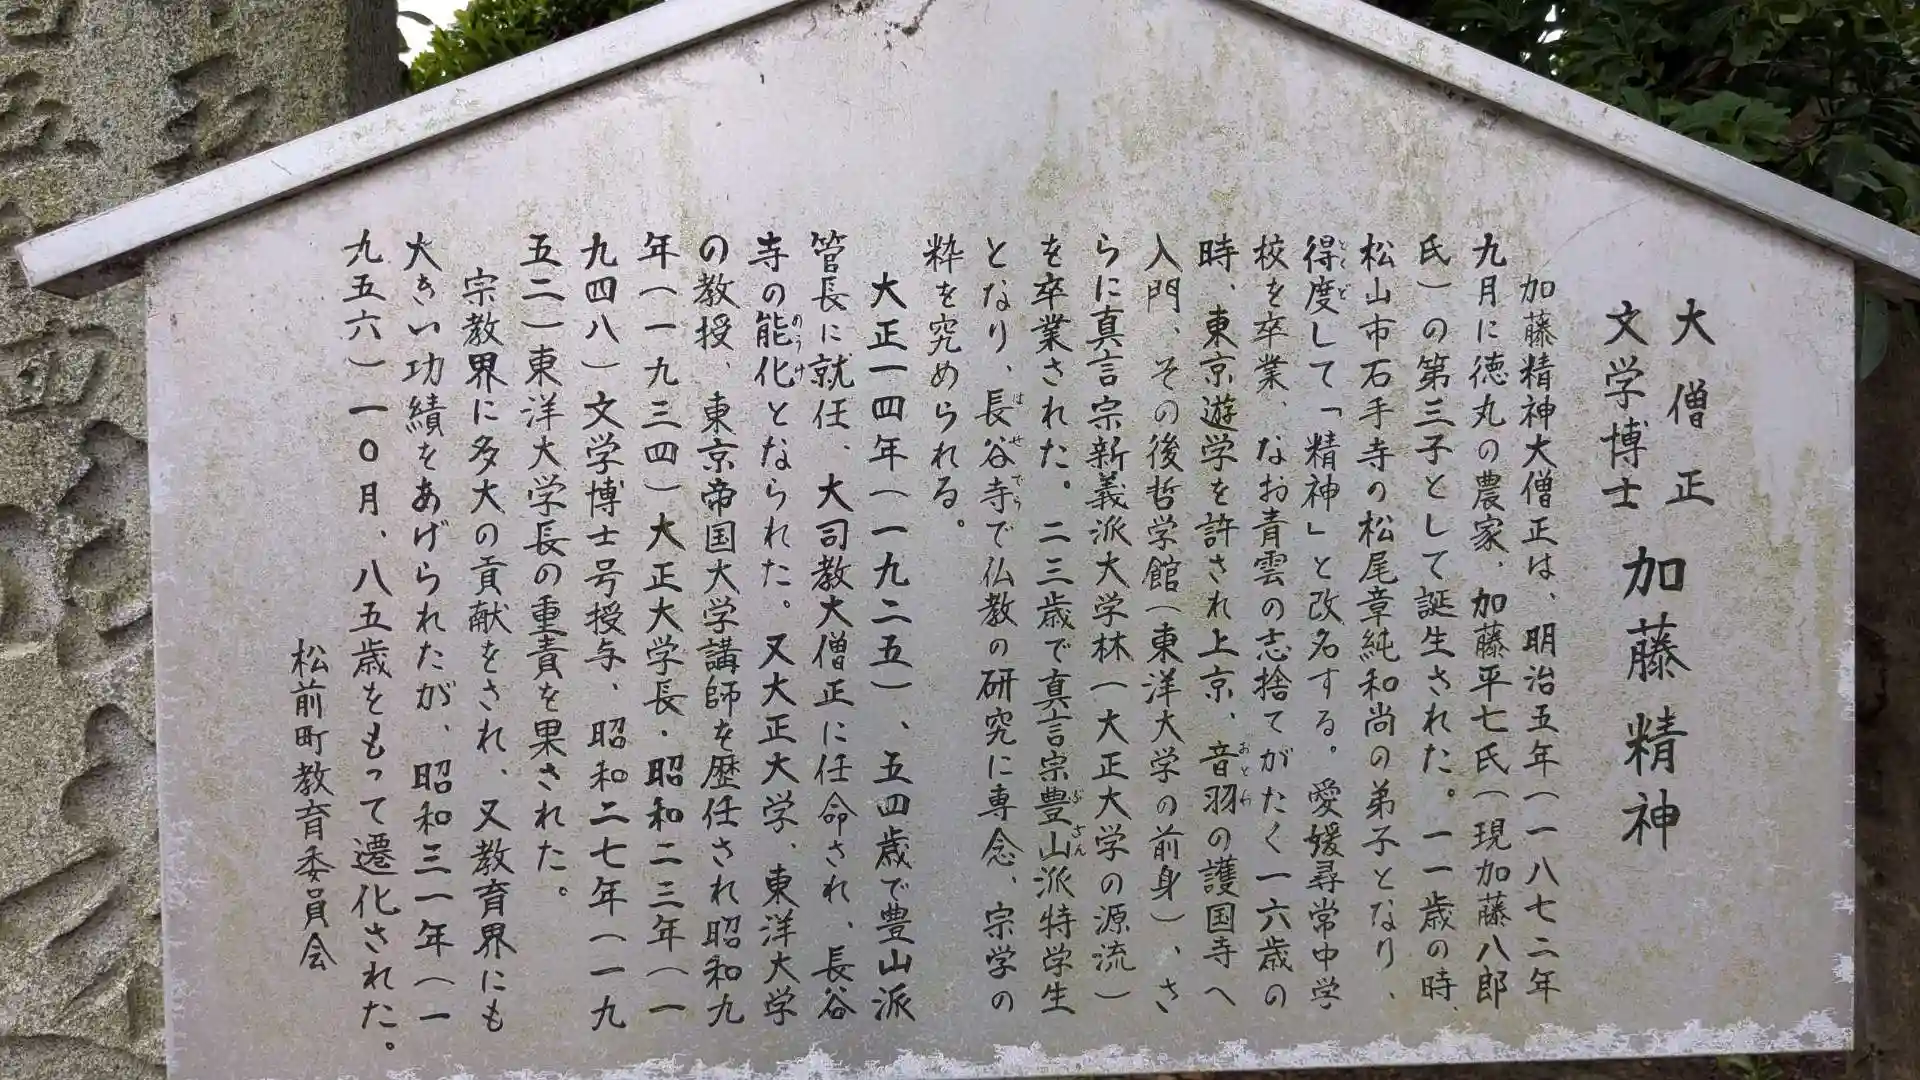 大僧正
文学博士 加藤精神
加藤精神大僧正は、明治五年(一八七二年
九月に徳丸の農家、加藤平七氏(現加藤八郎
氏)の第三子として誕生された。一一歳の時、
松山市石手寺の松尾章純和尚の弟子となり、
得度して「精神」と改名する。愛媛尋常中学
校を卒業、なお青雲の志捨てがたく一六歳の
時、東京遊学を許され上京、音羽の護国寺へ
入門、その後哲学館(東洋大学の前身)、さ
らに真言宗新義派大学林(大正大学の源流)
を卒業された。二三歳で真言宗豊山派特学生
となり、長谷寺で仏教の研究に専念、宗学の
粋を究められる。
大正一四年(一九二五)、五四歳で豊山派
管長に就任、大司教大僧正に任命され、長谷
寺の能化となられた。又大正大学、東洋大学
の教授、東京帝国大学講師を歴任され昭和九
年(一九三四)大正大学長・昭和二三年(一
九四八)文学博士号授与、昭和二七年(一九
五二)東洋大学長の重責を果された。
宗教界に多大の貢献をされ、又教育界にも
大きい功績をあげられたが、昭和三一年(一
九五六)一〇月、八五歳をもって遷化された。
松前町教育委員会